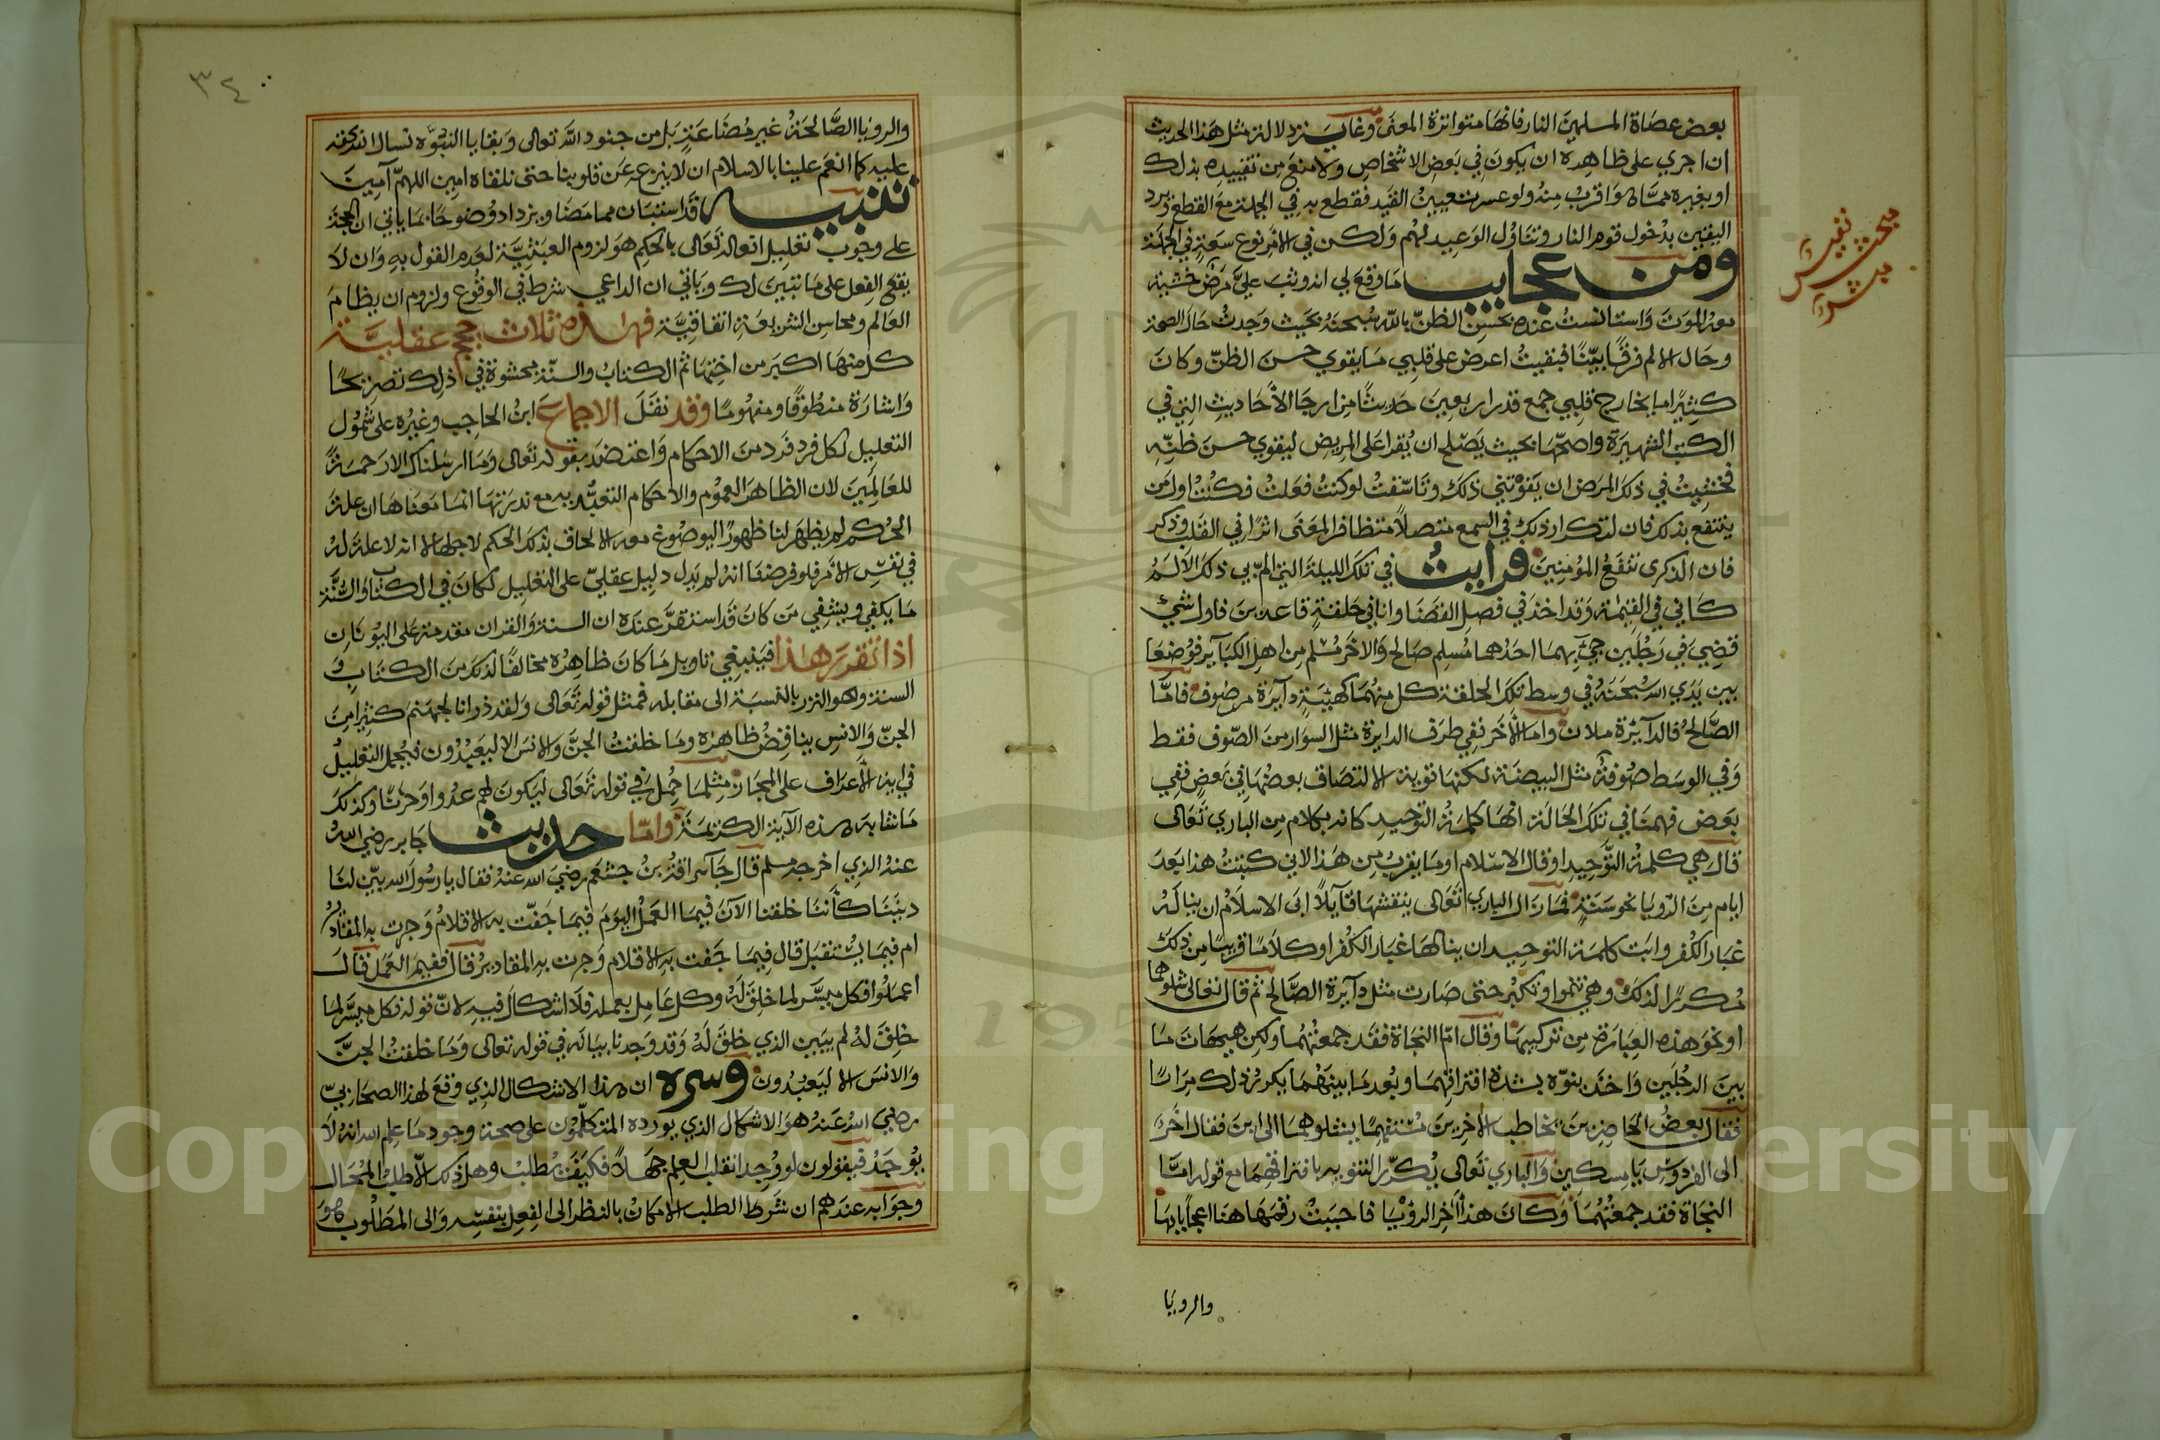 بعض عصاة المسلمين النار فانها متواترة المعنى وغاية دلالة مثل هذا الحديث
ان اجري على ظاهره ان يكون في بعض الاشخاص ولا منع من تقييده بذلك
او بغيره مما واقرب منه ولو عسرت تعيين القيد فقطع به في الجملة مع القطع وبرد
اليقين بدخول قوم النار وتناول الوعيد لهم ولكن في الامر نوع سعة في الجملة
ومن عجايب ما وقع لي انه وثب علي مرض خشية
معه الموت واستانست عنده بحسن الظن بالله سبحنه بحيث وجدت حال الصحة
وحال الالم فرقا بينا فبقيت اعرض على قلبي ما يقوي حسن الظن وكان
كثيرا ما يخارج قلبي جمع قدر اربعين حديثا من ارجا الاحاديث التي في
الكتب الشهيرة واصحها بحيث يصلح ان يقرا على المريض ليقوي حسن ظنه
فخشيت في ذلك المرض ان يفوتني ذلك وتاسفت لو كنت فعلت فكنت اول من
ينتفع بذلك فان لتكرار ذلك في السمع متصلا متظافر المعنى اثرا في القلب وذكر
فان الذكرى تنفع المؤمنين فرايت في تلك الليلة التي الم بي ذلك الالم
كاني في القيمة وقد اخذ في فصل القضا وانا في حلقة قاعدين فاول شئ
قضي في رجلين جئ بهما احدهما مسلم صالح والاخر مسلم من اهل الكبائر فوضعا
بين يدي الله سبحنه في وسط تلك الحلقة كل منهما كهيئة دآيرة من صوف فاما
الصالح فالدآئرة ملان واما الاخر ففي طرف الدايرة مثل السوار من الصوف فقط
وفي الوسط صوفة مثل البيضة لكنها قوية الالتصاق بعضها في بعض ففي
بعض فهمنا في تلك الحالة انها كلمة التوحيد كانه بكلام من الباري تعالى
قال هي كلمة التوحيد او قال الاسلام او ما يقرب من هذا لاني كتبت هذا بعد
ايام من الرويا نحو ستة فما زال الباري تعالى ينقشها قآيلا ابى الاسلام ان يناله
غبار الكفر وابت كلمة التوحيد ان ينالها غبار الكفر او كلاما قريبا من ذلك
مكررا لذلك وهي تنموا وتكبر حتى صارت مثل دآيرة الصالح ثم قال تعالى شلوهما
او نحو هذه العبارة من تركيبها وقال اما النجاة فقد جمعتهما ولكن هيهات ما
بين الرجلين واخذ ينوه بشدة افتراقهما وبعد ما بينهما يكرر ذلك مرارا
فقال بعض الحاضرين يخاطب الاخرين مستفهما ينقلوهما الى اين فقال اخر
الى الفردوس يا مسكين والباري تعالى يكرر التنويه بافتراقهما مع قوله اما
النجاة فقد جمعتهما وكان هذا اخر الرؤيا فاحببت رقمها هنا اعجابا بها
والرويا
مبحث نفيس
مبشر
٣٤
والرويا الصالحة غير مضاعة بل من جنود الله تعالى وبقايا النبوة نسال الله كفه
عليه كما انعم علينا بالاسلام ان لا ينزعه عن قلوبنا حتى نلقاه امين اللهم آمين
تنبيه قد استبان مما مضا ويزداد وضوحا بما ياتي ان الحجة
على وجوب تعليل افعاله تعالى بالحكم هو لزوم العبثية لعدم القول به وان لا
يقع الفعل على ما تبين لك وياتي ان الداعي شرط في الوقوع ولزوم ان نظام
العالم ومحاسن الشريعة اتفاقية فهذه ثلاث حجج عقلية
كل منها اكبر من اختها ثم الكتاب والسنة محشوة في ذلك تصريحا
واشارة منطوقا ومفهوما وقد نقل الاجماع ابن الحاجب وغيره على شمول
التعليل لكل فرد فرد من الاحكام واعتضد بقوله تعالى وما ارسلناك الا رحمة
للعالمين لان الظاهر العموم والاحكام التعبديه مع ندرتها انما معناها ان علة
الحكم لم يظهر لنا ظهورا يسوغ معه الالحاق بذلك الحكم لاجلها لا انه لا علة له
في نفس الامر فلو فرضنا انه لم يدل دليل عقلي على التعليل لكان في الكتاب والسنة
ما يكفي ويشفي من كان قد استقر عنده ان السنة والقران مقدمة على اليونان
اذا تقرر هذا فينبغي تاويل ما كان ظاهره مخالفا لذلك من الكتاب و
السنة وهو النزر بالنسبة الى مقابله فمثل قوله تعالى ولقد ذرانا لجهنم كثيرا من
الجن والانس يناقض ظاهره وما خلقت الجن والانس الا ليعبدون فيحمل التعليل
في اية الاعراف على المجاز مثلما حمل في قوله تعالى ليكون لهم عدوا وحزنا وكذلك
ما شابه هذه الآية الكريمة واما حديث جابر رضي الله
عنه الذي اخرجه مسلم قال جا سراقة بن جشعم رضي الله عنه فقال يا رسول الله بين لنا
ديننا كأننا خلقنا الآن فيما العمل اليوم فيما جفت به الاقلام وجرت به المقادير
ام فيما يستقبل قال فيما جفت به الاقلام وجرت به المقادير قال ففيم العمل قال
اعملوا فكل ميسر لما خلق له وكل عامل بعمله فلا اشكال فيه لان قوله فكل ميسر لما
خلق له لم يبين الذي خلق له وقد وجدنا بيانه في قوله تعالى وما خلقت الجن
والانس الا ليعبدون وسره ان هذا الاشكال الذي وقع لهذا الصحابي
رضي الله عنه هو الاشكال الذي يورده المتكلمون على صحة وجود ما علم الله انه لا
يوجد فيقولون لو وجد انقلب العلم جهلا فكيف يطلب وهل ذلك الا طلب المحال
وجوابه عندهم ان شرط الطلب الامكان بالنظر الى الفعل بنفسه والى المطلوب هو